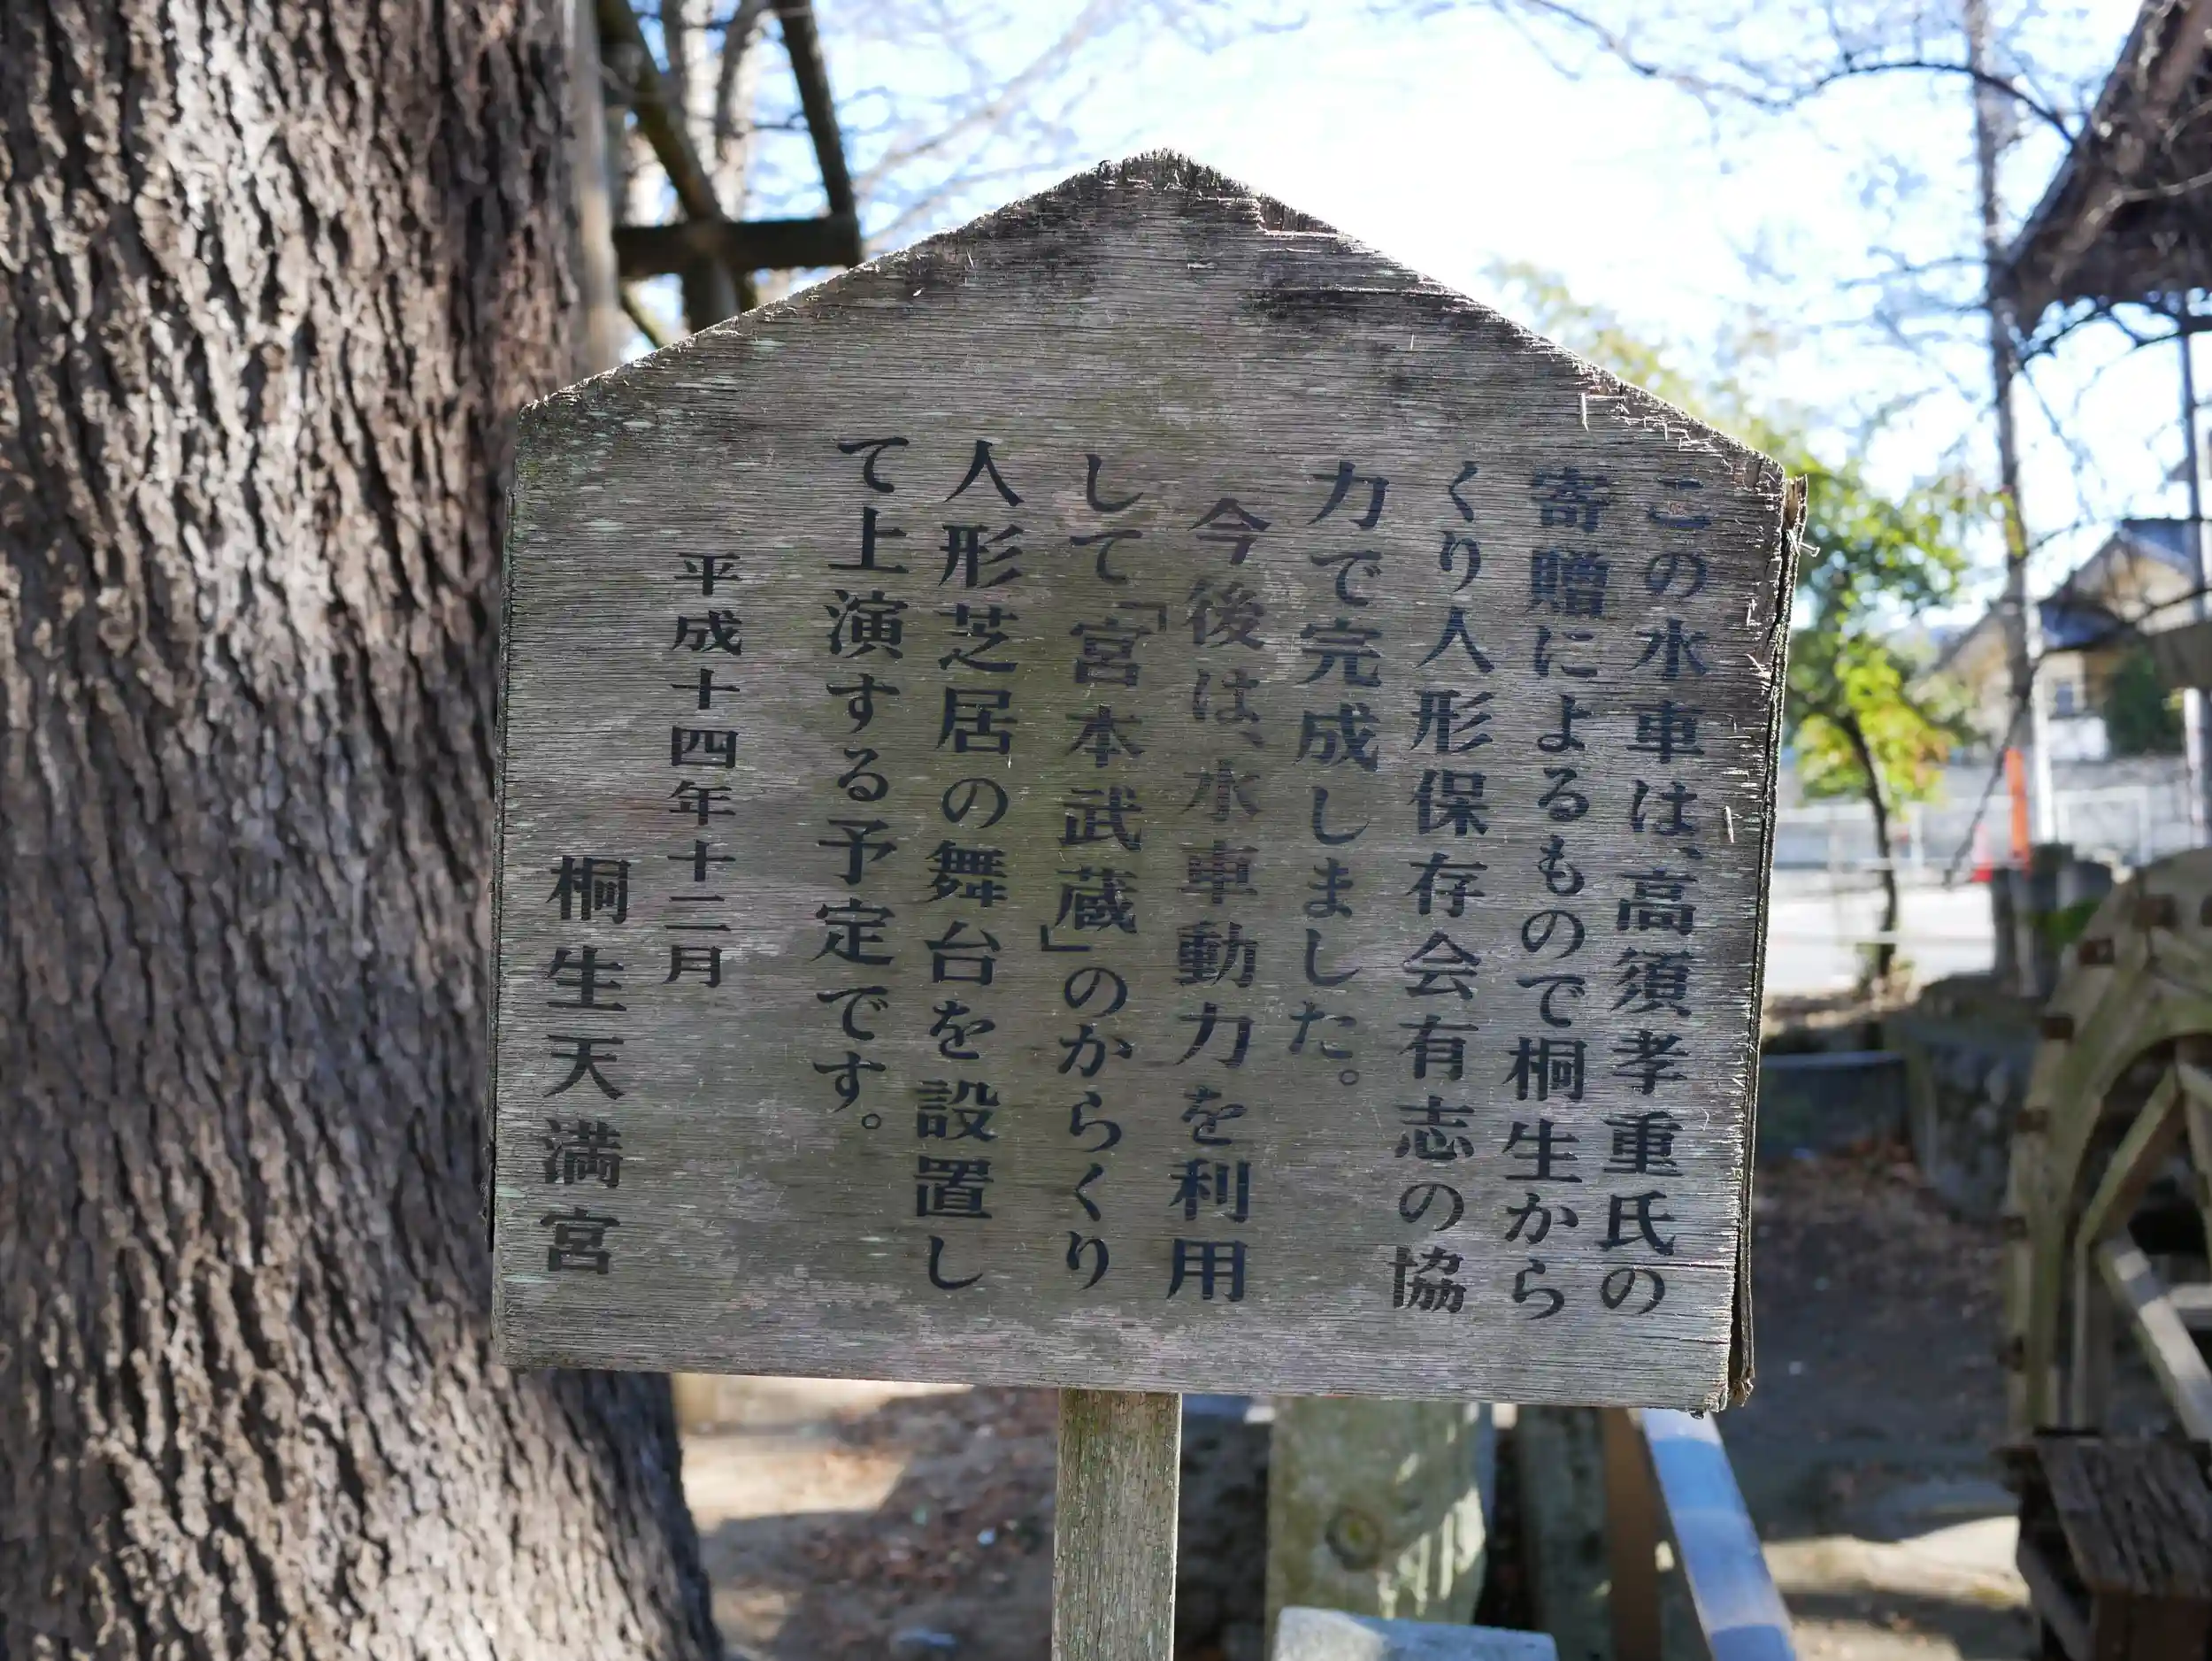 この水車は、高須孝重氏の
寄贈によるもので桐生から
くり人形保存会有志の協
力で完成しました。
今後は、水車動力を利用
して「宮本武蔵」のからくり
人形芝居の舞台を設置し
て上演する予定です。
平成十四年十二月
桐生天満宮